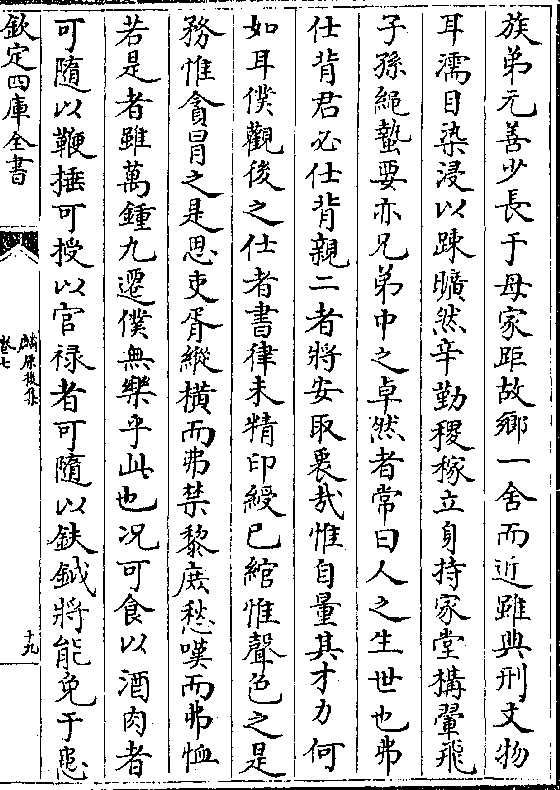 族弟元善少長于母家距故鄉一舍而近雖典刑文物
耳濡目染浸以踈曠然辛勤稷稼立身持家堂構翬飛
子孫繩蟄要亦兄弟中之卓然者常曰人之生世也弗
仕背君必仕背親二者將安取裏㦲惟自量其才力何
如耳僕觀後之仕者書律未精印綬已綰惟聲色之是
務惟貪冐之是思吏胥縱橫而弗禁黎庶愁嘆而弗恤
若是者雖萬鍾九遷僕無樂乎此也况可食以酒肉者
可隨以鞭捶可授以官禄者可隨以鈇鉞將能免于患
欽定四庫全書
麟原後集
卷七
十九